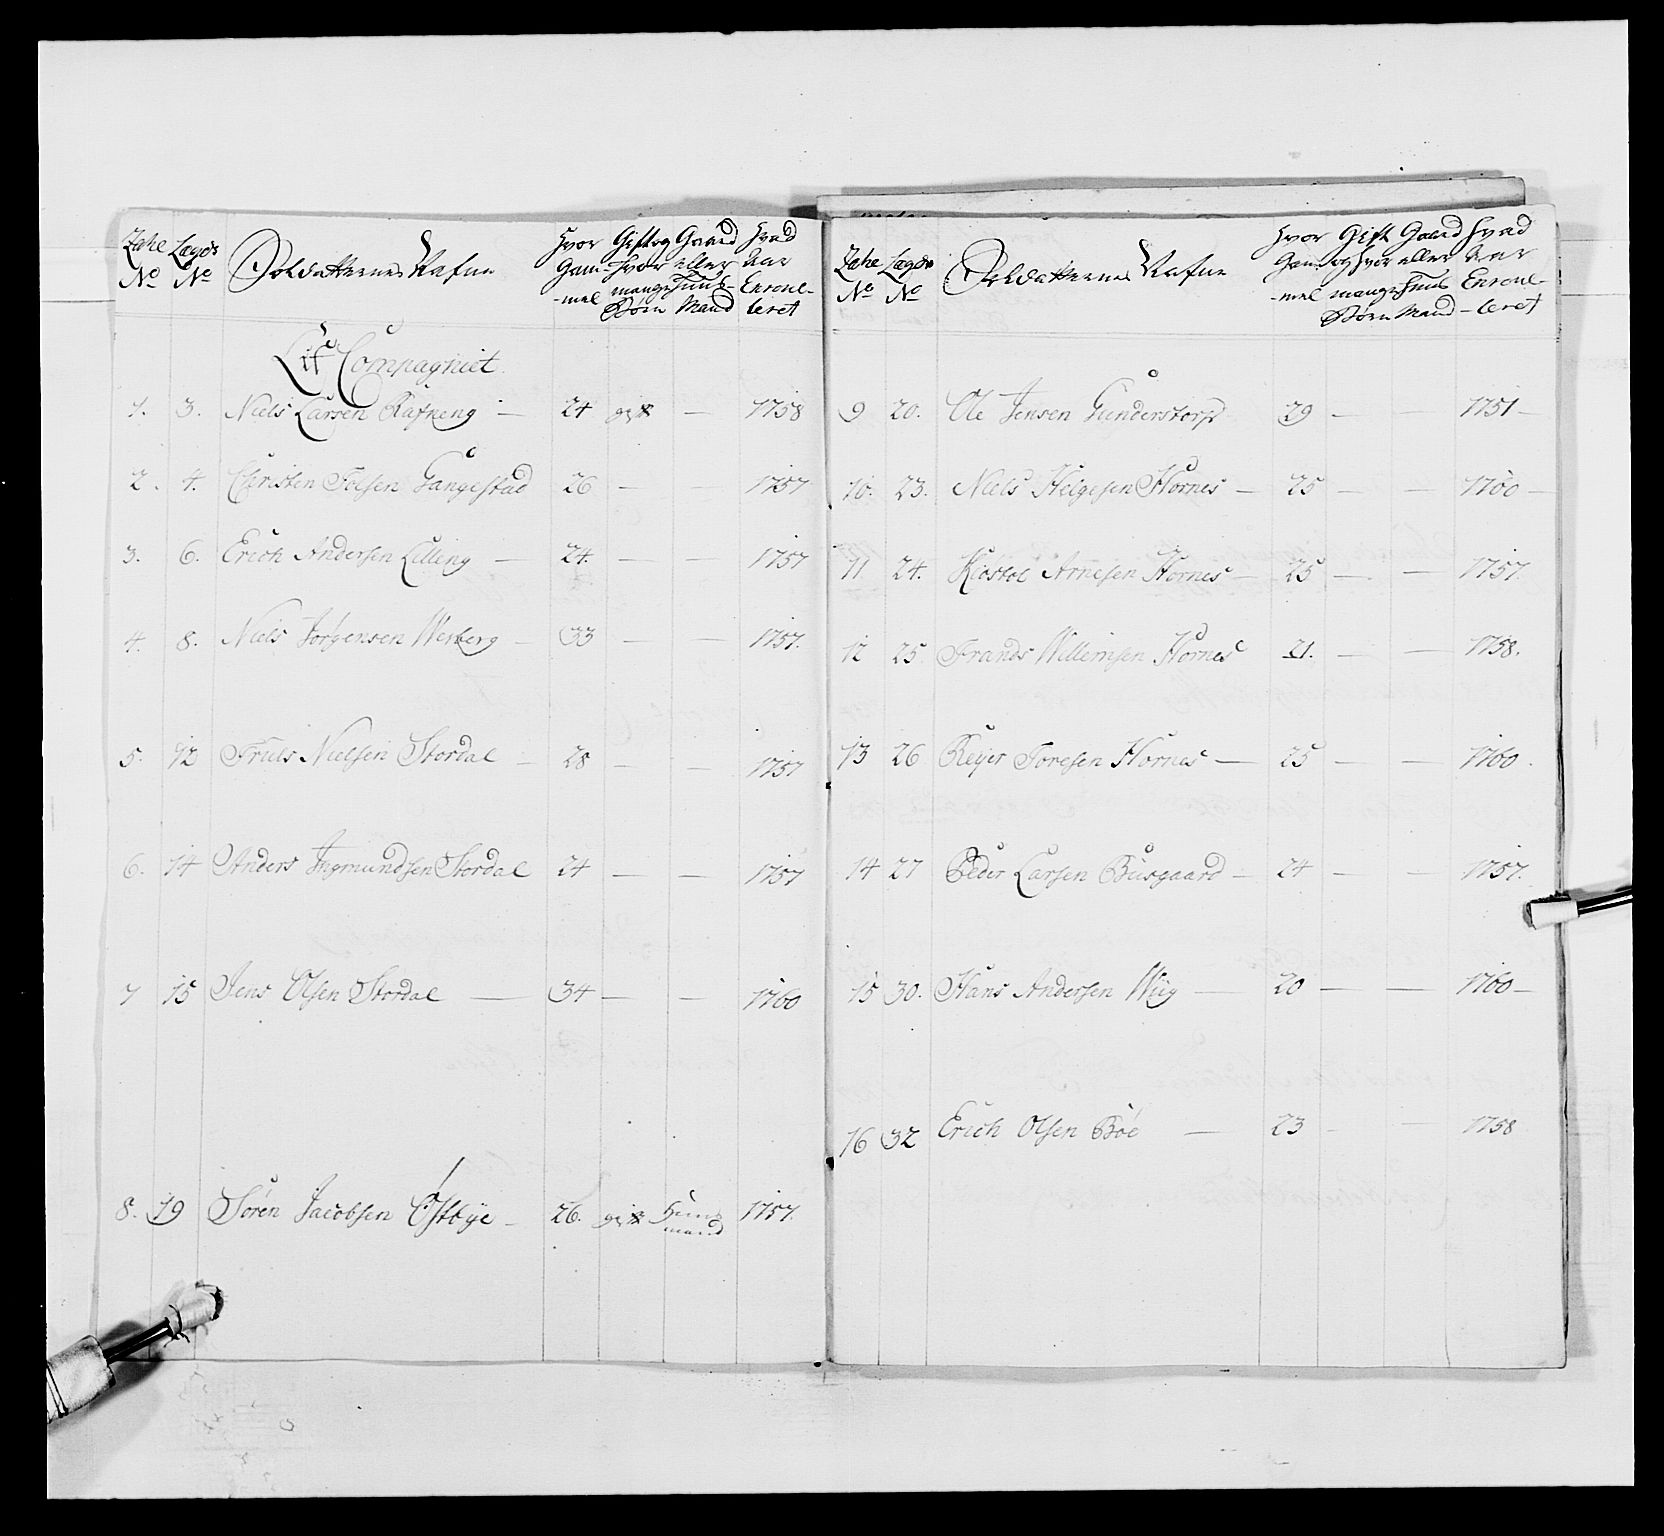 Zahl No
Lægds No
Soldatternes Nafne
Hvor Gam-mel
Gift og Hvor mange Børn
Gaard eller Huus-Mand
Hvad Aar Enroul-leret
Lif Compagniet
1. 3. Niels Larsen Rafneng — 24 gift — 1758
2. 4. Christen Tolsen Gangestad 26 — — 1757
3. 6. Erich Andersen Lilleng — 24. — — 1757
4. 8. Niels Jörgensen Werberg — 33 — — 1757.
5. 12 Truls Nielsen Stordal — 28 — — 1757
6. 14 Anders Ingmundsen Stordal 24 — — 1757
7 15 Jens Olsen Stordal — 34 — — 1760
8. 19 Sören Jacobsen Østbye — 26. gift Huus mand 1757.
Zahl No
Lægds No
Soldatternes Nafne
Hvor Gam-mel
Gift og Hvor mange Børn
Gaard eller Huus Mand
Hvad Aar Enroul-leret
9 20. Ole Jensen Gunderstorp 29 — — 1751 —
10. 23. Niels Helgesen Hornes — 25 — — 1760 —
11 24. Kiostol Arnesen Hornes — 25 — — 1757.
12 25 Frands Willemsen Hornes 21. — — 1758.
13 26 Reyer Toresen Hornes — 25 — — 1760.
14 27 Peder Larsen Busgaard — 24 — — 1757.
15 30. Hans Andersen Wiig — 20 — — 1760 —
16 32 Erich Olsen Böe — 23 — — 1758